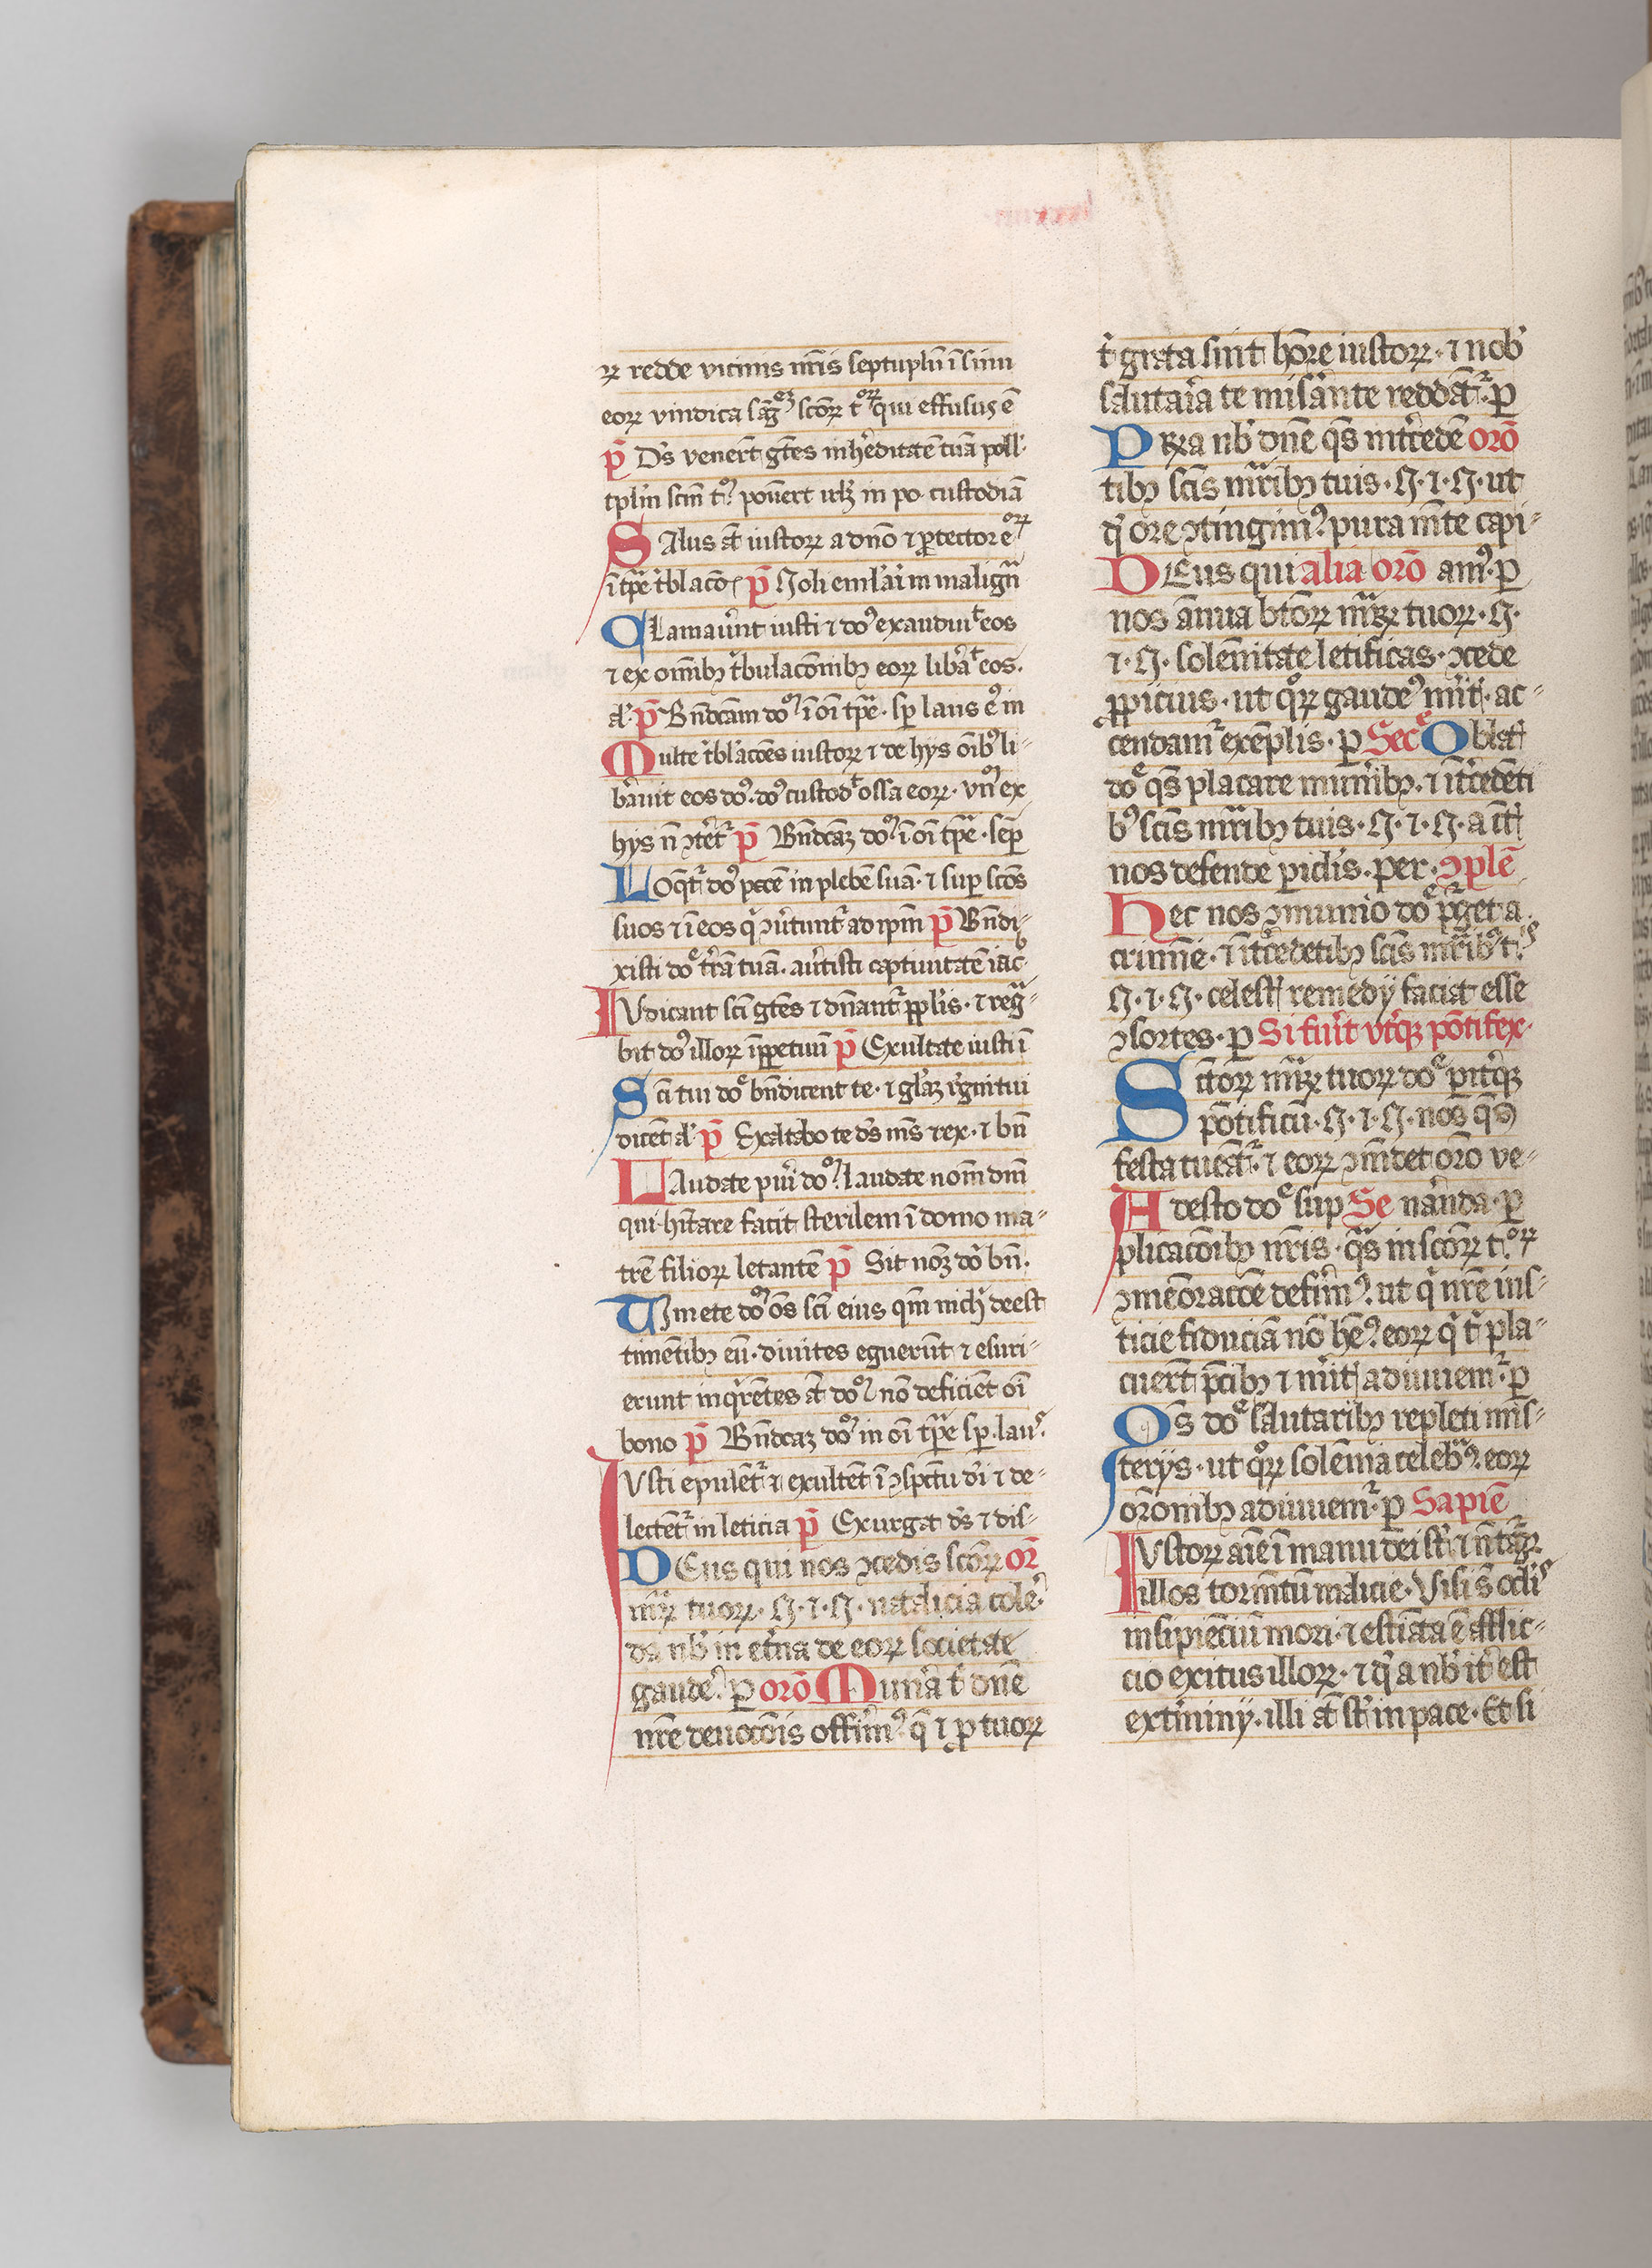 ꝝ redde vicinis nr̄is septuplū ī sinu
eoꝝ vindica sāg̃ scōꝝ t qui effusus ē
p̄ Ds̄ venert̄ gt̄es in hẽditatē tuā poll̛
tplm̄ scm̄ posuert̄ in po custodiā
SAlus at̄ iustoꝝ a dn̄o ⁊ ꝓtector eoꝝ
ī tp̄e t̾blacōis p̄ Noli emlai̾ in malign̄
Clamau̾nt iusti ⁊ do᷒ exaudiuit eos
⁊ ex om̄ibꝫ t̾bulacōnibꝫ eoꝝ libãt eos.
al̛ p̄ Bn̄dicam do᷒ ī oī tp̄e. sp̄ laus ē in
Multe t̾bl̛acōes iustoꝝ ⁊ de hys oībꝫ li-
b̾auit eos do᷒. do᷒ custodit ossa eoꝝ. vnū ex
hys n̄ ꝯtet̾ p̄ Bn̄dicaꝫ do᷒ ī oī tp̄e. semꝑ
Loq̄t̾ do᷒ pacē in plebē suā. ⁊ suꝑ scōs
suos ⁊ ī eos q̾ ꝯu̾tunt̾ ad ip̄m p̄ Bn̄di-
xisti doe tr̄ā tuā. au̾tisti captiuitatē iac
Iudicant sc̄i gt̄es ⁊ dn̄ant̾ ppl̛is. ⁊ regͣ-
bit do᷒ illoꝝ īꝑpetuū p̄ Exultate iusti ī
Sc̄i tui doe bn̄dicent te. ⁊ gl̛aꝫ r̾gni tui
dicēt al̛ p̄ Exaltabo te ds̄ ms̄ rex. ⁊ bn̄
LAudate pu̾i do᷒ laudate nom̄ dn̄i
qui hīt̾are facit sterilem ī domo ma-
trē filioꝝ letantē p̄ Sit nom̄ do᷒ bn̄.
Timete do᷒ om̄s sc̄i eius qm̄ nich̛ deest
timētibꝫ eū. diuites eguerūt ⁊ esuri-
erunt inq̾rētes at̄ do᷒ nō deficiēt oī
bono p̄ Bn̄dicaꝫ do᷒ in oī tp̄e sp̄. lau᷒
Iusti epulēt̾ ⁊ exultēt ī ꝯspectu dī ⁊ de-
lectēt̾ in leticia p̄ Exurgat ds̄ ⁊ dis-
DEus qui nos ꝯcedis scōꝝ or̄
mr̄ꝝ tuoꝝ. N. ⁊ N. natalicia cole᷒
da nb̛ in et̾na de eoꝝ societate
gaude᷒ ꝑ orō Mun̾a t̾ dn̄e
nr̄e deuocōnis offim᷒ q̄ ⁊ ꝓ tuoꝝ
t̾ grata sint hōre iustoꝝ. ⁊ nob̛
salutaria te mis̾ante reddāt̾. ꝑ
Pr̄xa nb̛ dn̄e qs̄ int̾cedē orō
tibꝫ sc̄is mr̄ibꝫ tuis. N. ⁊ N. ut
q̛ ore ꝯtingim᷒ pura mēte capi-
DEus qui alia orō am᷒. ꝑ
nos ānua btōꝝ mr̄ꝝ tuoꝝ. N.
⁊. N. solēnitate letificas. ꝯcede
ꝓpicius. ut qͦꝝ gaude᷒ mit̾. ac-
cendam̾ exēplis. ꝑ Sece Oblat
doe qs̄ placare mun̾ibꝫ. ⁊ int̾cedēti
b᷒ sc̄is mr̄ibꝫ tuis. N. ⁊ N. a
nos defende ꝑiclis. per. ꝯplē
Hec nos ꝯmunio doe p̾get a
crimīe. ⁊ int̾cedētibꝫ sc̄is mr̄ib᷒ t.
N. ⁊. N. celest remedy faciat esse
ꝯsortes. ꝑ Si fu̾it vt̾qꝫ pōtifex.
Sctōꝝ mr̄ꝝ tuoꝝ doe ꝑit̾qꝫ
pōtificū. N. ⁊ N. nos qs̄
festa tueāt̾. ⁊ eoꝝ ꝯm̄det orō ve-
Adesto doe sup Se nãnda. ꝑ
plicacōibꝫ nr̄is. qs̄ in scōꝝ t. oꝝ
ꝯmēoracōe defim᷒. ut q̾ nr̄e ius-
ticie fiduciā nō hēm᷒. eoꝝ q̾ t̾ pla-
cuert̄ p̄cibꝫ ⁊ mit̾ adiuuem̾. ꝑ
Qs̄ doe salutaribꝫ repleti mis-
terijs. ut qͦꝝ solēnia celebͣm᷒. eoꝝ
orōnibꝫ adiuuem̾. ꝑ Sapiē
Iustoꝝ aīe ī manu dei st̄. ⁊ n̄ tāget
illos tormtū malicie. Visi s̄ oclis
insipiēciū mori. ⁊ estiāta ē afflic-
cio exitus illoꝝ. ⁊ q̾ a nb̛ it̾ est
ext̾miny. illi at̄ st̄ in pace. Et si